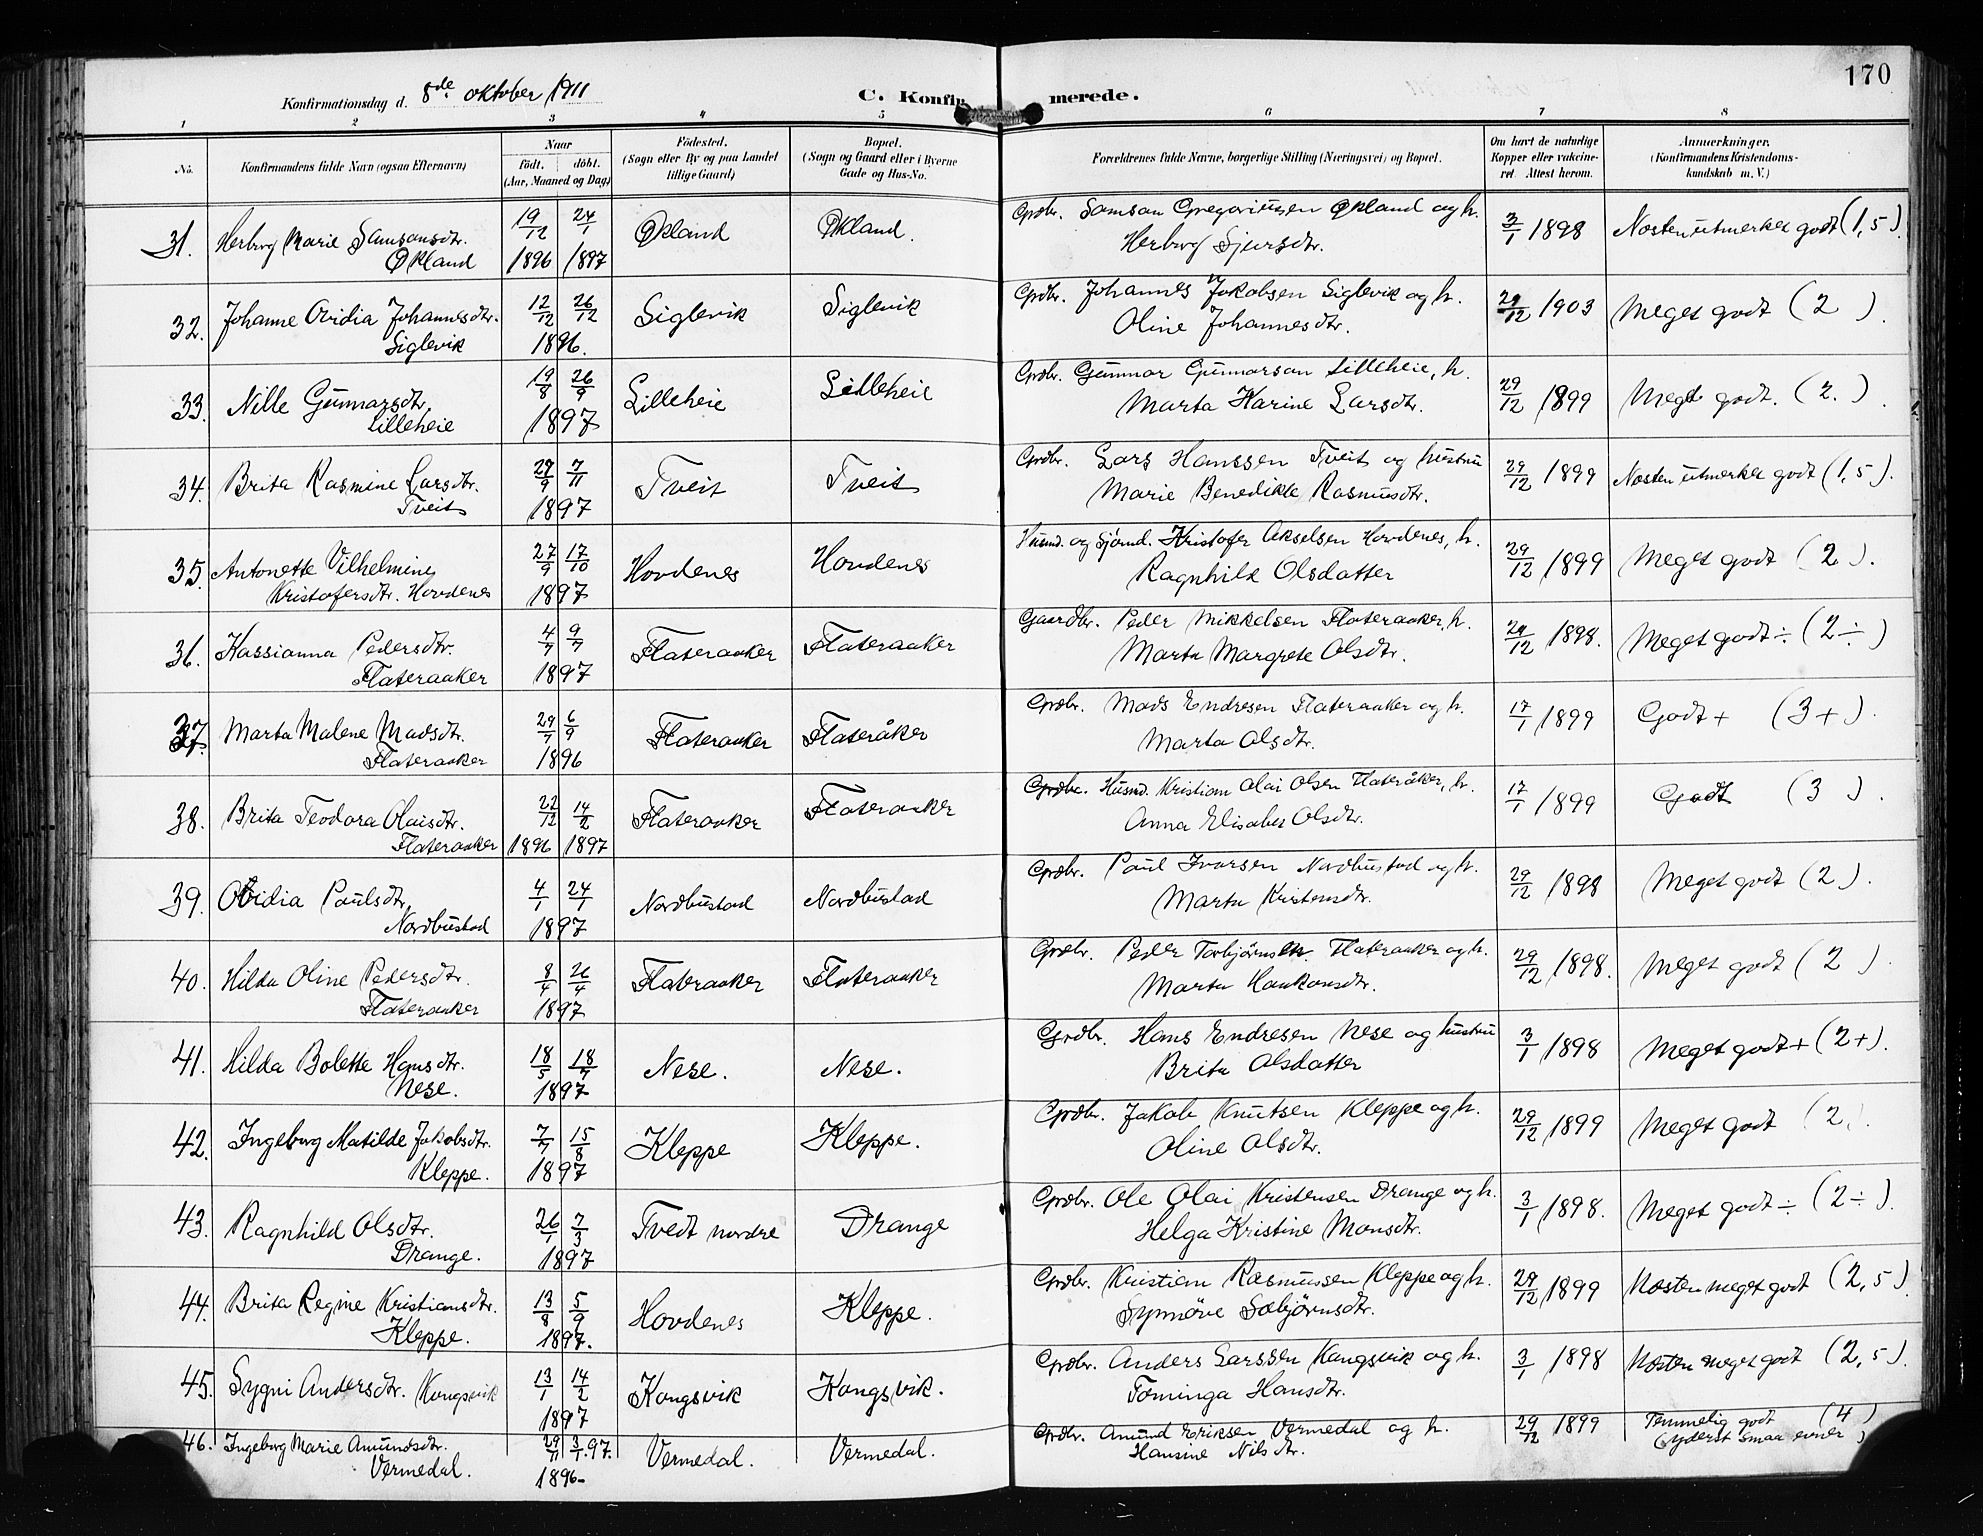 170
Konfirmationsdag d. 8de oktober 1911 C. Konfirmerede.
1 2 3 4 5 6 7 8
No. Konfirmandens fulde Navn (ogsaa Efternavn) Naar Födt. döbt. (Aar, Maaned og Dag) Födested. (Sogn eller By og paa Landet tillige Gaard) Bopæl. (Sogn og Gaard eller i Byerne Gade og Hus-No. Forældrenes fulde Navne, borgerlige Stilling (Næringsvei) og Bopæl. Om havt de naturlige Kopper eller vakcineret Attest herom. Anmerkninger. (Konfirmandens Kristendomskundskab m. V.)
31. Herborg Marie Samsonsdtr. 19/12 24/1 Økland Økland. Grdbr. Samson Gregoriussen Økland og h. 3/1 1898 Næsten utmerket godt (1,5).
Økland 1896 1897 Herborg Sjursdtr.
32. Johanne Ovidia Johannesdtr. 12/12 26/12 Siglevik Siglevik Grdbr. Johannes Jakobsen Siglevik og h. 29/12 1903 Meget godt (2).
Siglevik 1896. Oline Johannesdtr.
33. Nille Gunnarsdtr. 19/8 26/9 Lilleheie Lilleheie Grdbr. Gunnar Gunnarson Lilleheie, h. 29/12 1899 Meget godt. (2.).
Lilleheie 1897 Marta Karine Larsdtr.
34. Brita Rasmine Larsdtr. 29/9 7/11 Tveit Tveit Grdbr. Lars Hanssen Tveit og hustru 29/12 1899 Næsten utmerket godt (1,5).
Tveit 1897 Marie Benedikte Rasmusdtr.
35. Antonette Vilhelmine 27/9 17/10 Hovdenes Hovdenes Husmd. og Sjømd. Kristofer Akselsen Hovdenes, h. 29/12 1899 Meget godt (2).
Kristofersdtr. Hovdenes 1897 Ragnhild Olsdatter
36. Kassianna Pedersdtr. 4/7 9/7 Flateraaker Flateraaker Gaardbr. Peder Mikkelsen Flateraaker, h. 29/12 1898. Meget godt ÷ (2÷)
Flateraaker 1897 Marta Margrete Olsdtr.
37. Marta Malene Madsdtr. 29/7 6/9 Flateraaker Flateråker Grdbr. Mads Endresen Flateraaker og h. 17/1 1899 Godt + (3+).
Flateraaker 1896 Marta Olsdtr.
38. Brita Teodora Olaisdtr. 22/12 14/2 Flateraaker Flateraaker Grdbr. Husmd. Kristian Olai Olsen Flateråker, h. 17/1 1899 Godt (3).
Flateraaker 1896 1897 Anna Elisabet Olsdtr.
39. Ovidia Paulsdtr. 4/1 24/1 Nordbustad Nordbustad Grdbr. Paul Ivarsen Nordbustad og h. 29/12 1898 Meget godt (2).
Nordbustad 1897 Marta Kristensdtr.
40. Hilda Oline Pedersdtr. 8/4 26/4 Flateraaker Flateraaker Grdbr. Peder Torbjørnsen Flateraaker og h. 29/12 1898. Meget godt (2).
Flateraaker 1897 Marta Haakonsdtr.
41. Hilda Bolette Hansdtr. 18/5 18/7 Nese. Nese. Grdbr. Hans Endresen Nese og hustru 3/1 1898 Meget godt + (2+).
Nese. 1897 Brita Olsdatter
42. Ingeborg Matilde Jakobsdtr. 7/7 15/8 Kleppe Kleppe. Grdbr. Jakob Knutsen Kleppe og h. 29/12 1899 Meget godt (2).
Kleppe. 1897 Oline Olsdtr.
43. Ragnhild Olsdtr. 26/1 7/3 Tvedt nordre Drange Grdbr. Ole Olai Kristensen Drange og h. 3/1 1898. Meget godt ÷ (2÷).
Drange. 1897 Helga Kristine Monsdtr.
44. Brita Regine Kristiansdtr. 13/8 5/9 Hovdenes Kleppe. Grdbr. Kristian Rasmussen Kleppe og h. 29/12 1899 Næsten meget godt (2,5)
Kleppe. 1897. Synnöve Sæbjørnsdtr.
45. Sygni Andersdtr. Kongsvik 13/1 14/2 Kongsvik Kongsvik. Grdbr. Anders Larssen Kongsvik og h. 3/1 1898 Næsten meget godt (2,5).
1897 Tominga Hansdtr.
46. Ingeborg Marie Amundsdtr. 29/11 3/1.97. Vermedal. Vermedal. Grdbr. Amund Eriksen Vermedal og h. 29/12 1899 Temmelig godt (4)
Vermedal. 1896. Hansine Nilsdtr. (yderst smaa evner)